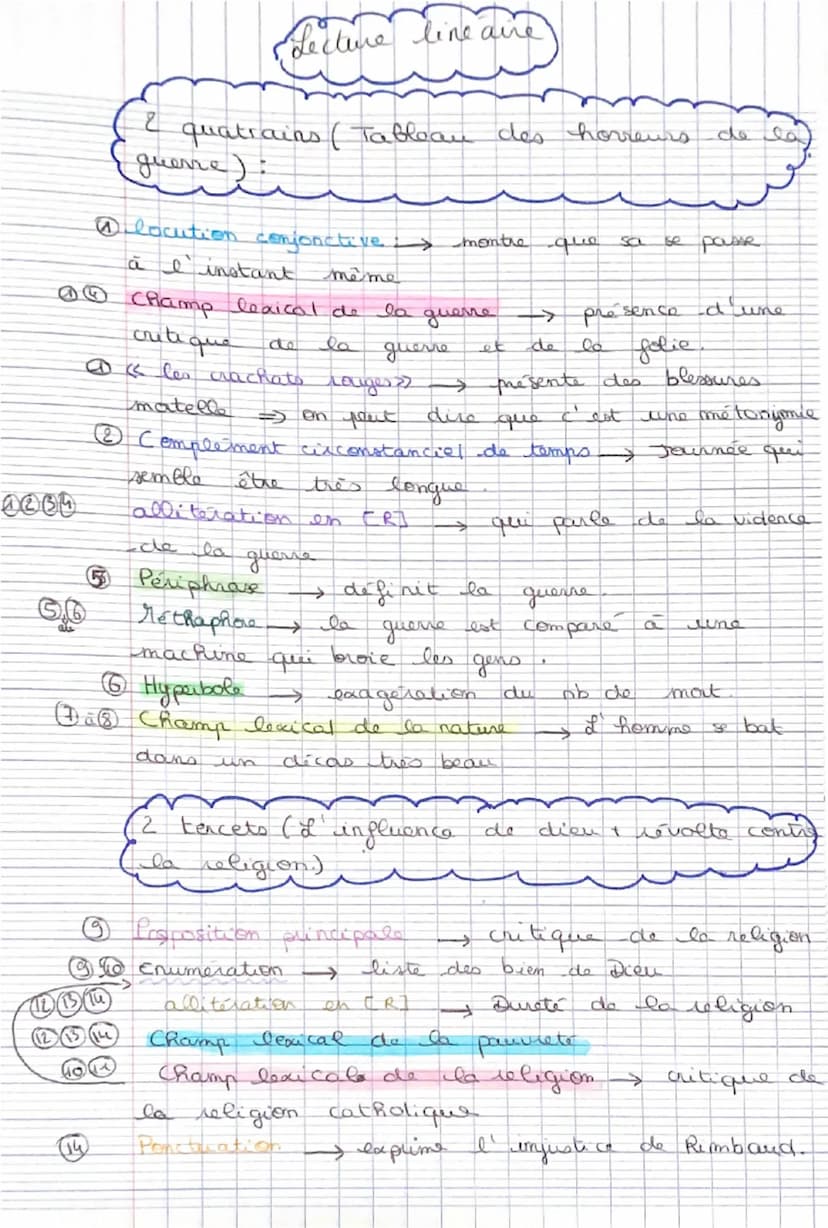 Lecture linéaire
2 quatrains (Tableau des horreurs de la
guerre) :
① locution conjonctive : → montre que sa se passe
à l'instant même
① ④ Champ lexical de la guerre → présence d'une
critique de la guerre et de la folie.
① « les crachats rouges » → présente des blessures
matelle ⇒ on peut dire que c'est une métonymie
② Complément circonstanciel de temps → Journée qui
semble être très longue.
①②③④ allitération en [R] → qui parle de la vidence
de la guerre
⑤ Périphrase → définit la guerre.
⑤,⑥ Méthaphore → la guerre est comparé à une
machine qui broie les gens.
⑥ Hyperbole → exagération du nb de mort.
⑦ à ⑧ Champ lexical de la nature → L'homme se bat
dans un dicas très beau
2 tercets (L'influence de dieu + révolte contre
la religion.)
⑨ Proposition principale → critique de la religion
⑨ ⑩ Enumération → liste des bien de Dieu
⑫ ⑬ ⑭ allitération en [R] → Dureté de la religion
⑫ ⑬ ⑭ Champ lexical de la pauvreté
⑩ ⑪ Champ lexicale de la religion → critique de
la religion catholique
⑭ Ponctuation → exprime l'injustice de Rimbaud.